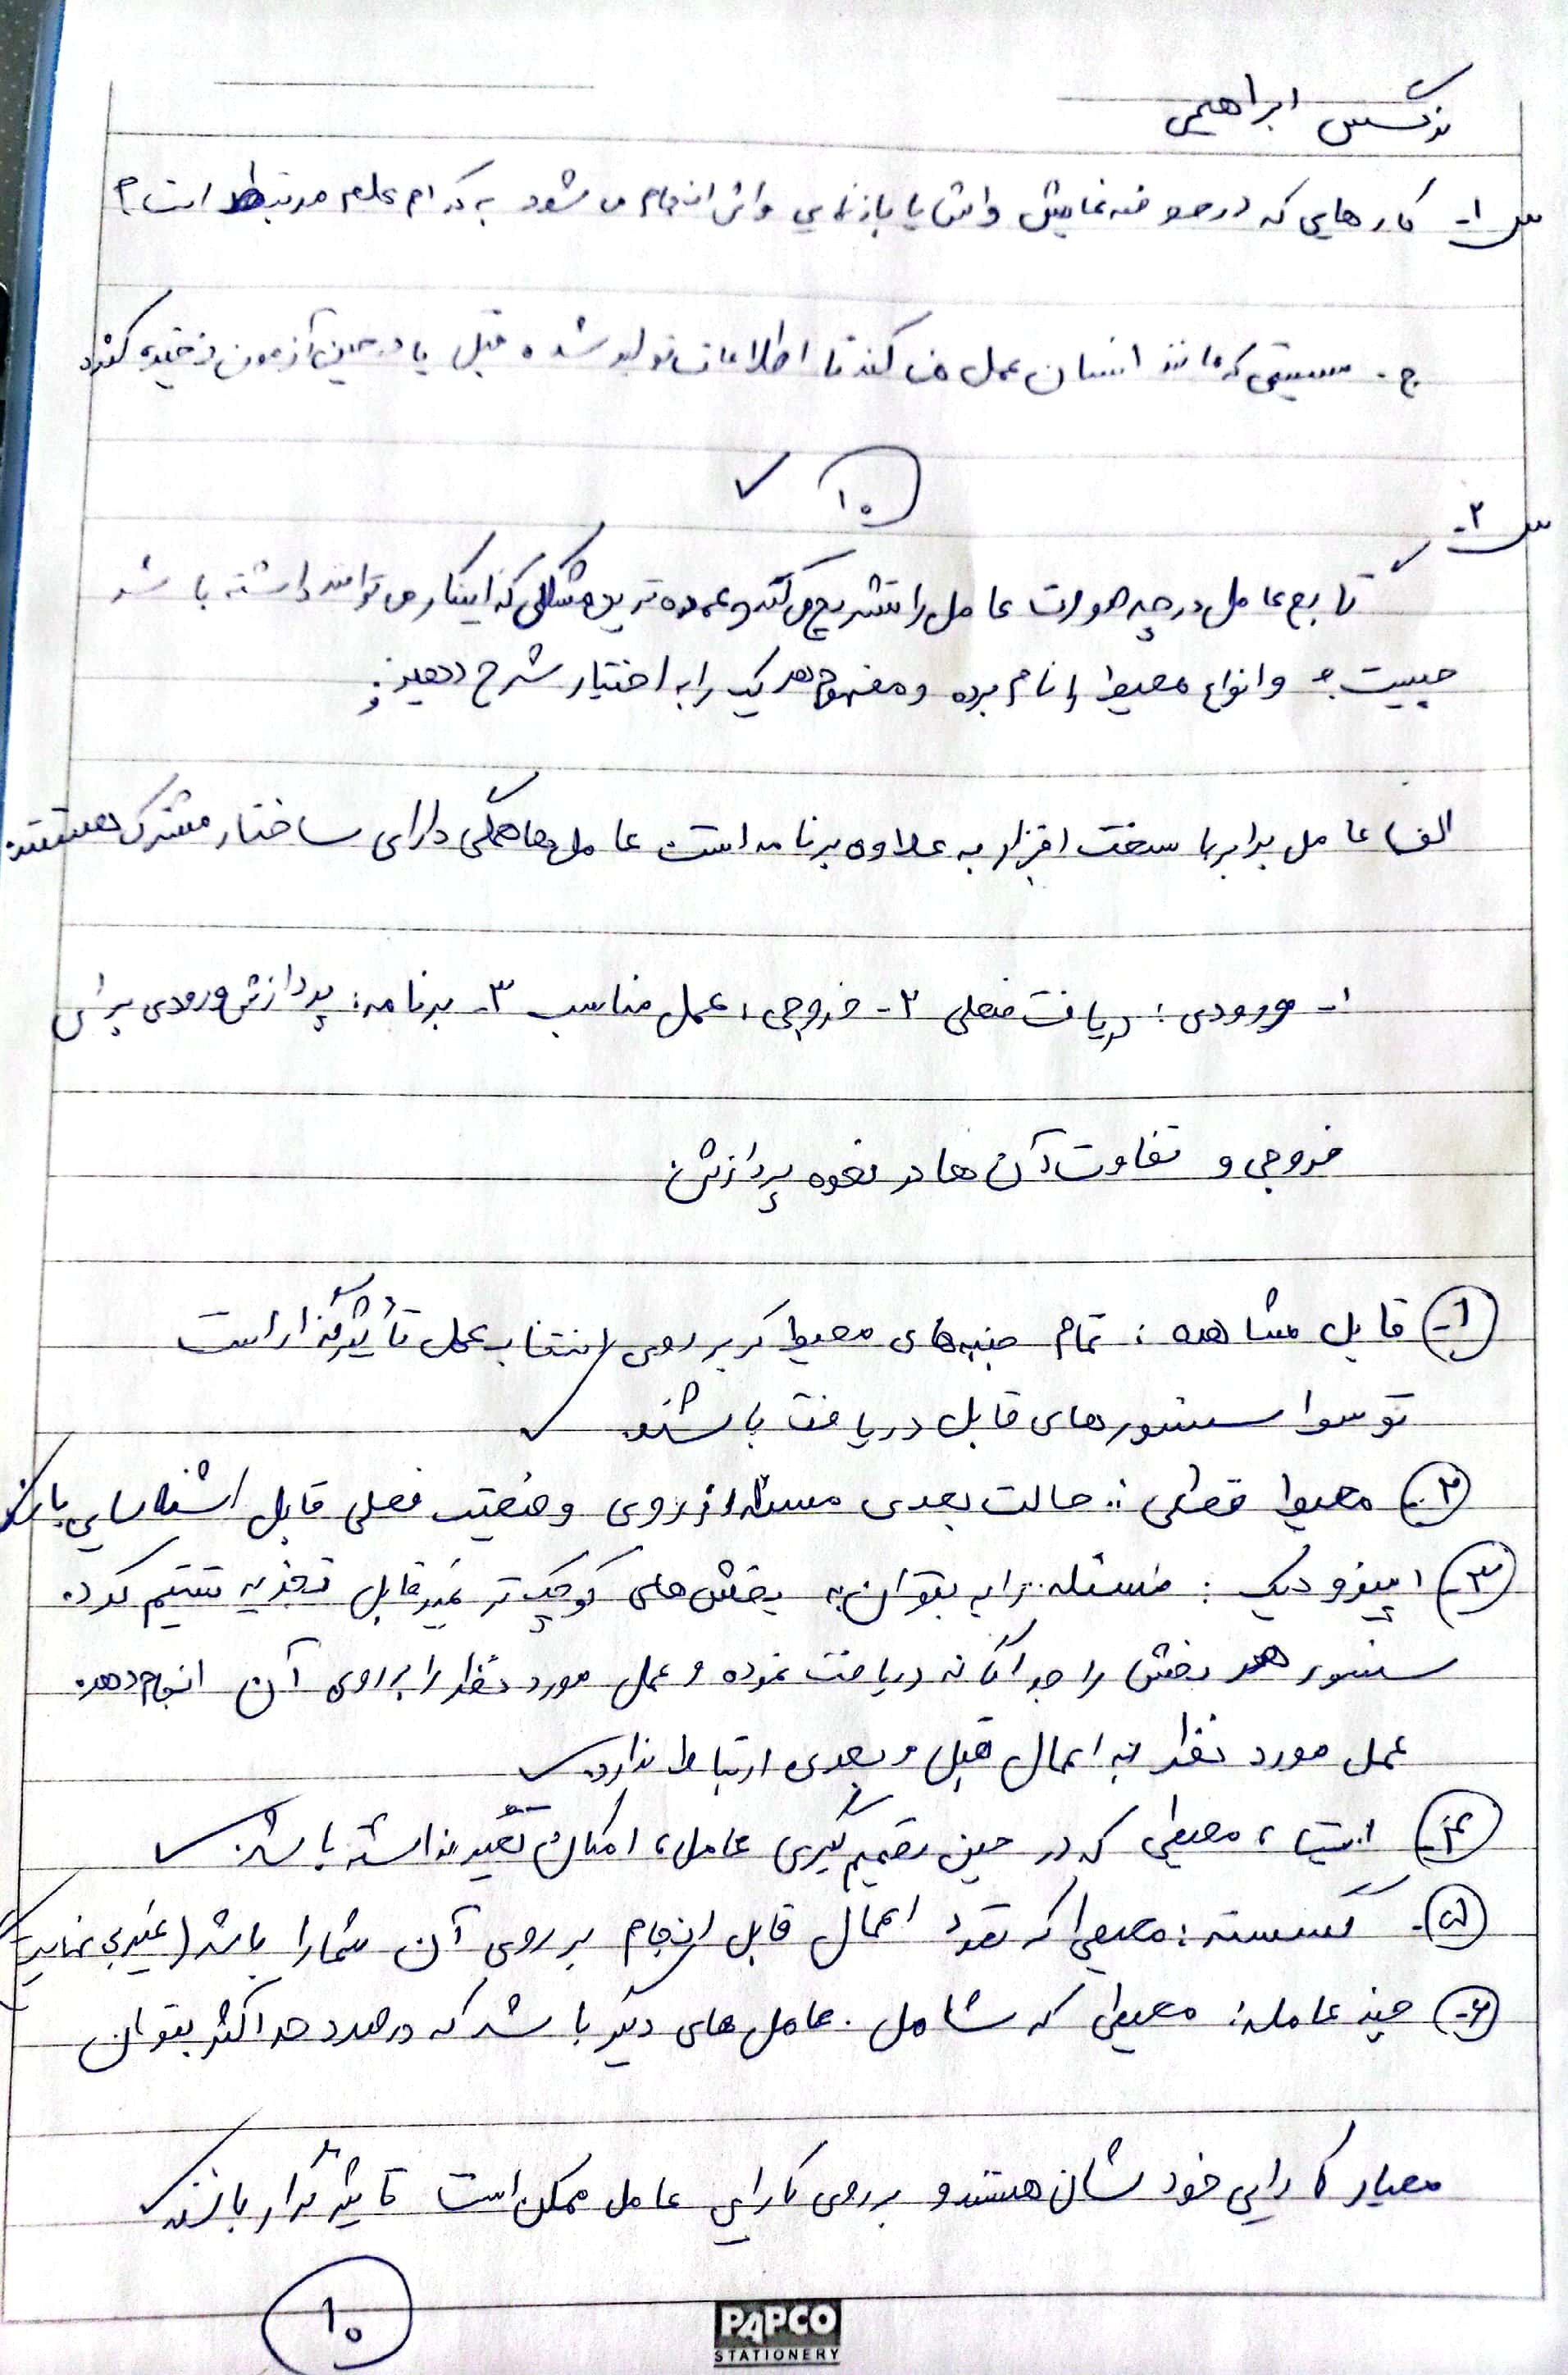 نرگس ابراهیمی
س ۱- کارهایی که در حوضه نمایش دانش یا بازنمایی دانش انجام می شود به کدام علم مرتبط است؟
ج - سیستمی که مانند انسان عمل می کند تا اطلاعات تولید شده قبل یا در حین آزمون ذخیره کند
۱۰
س ۲-
تابع عامل در چه صورت عامل را تشریح می کند و عمده ترین مشکلی که اینکار می تواند داشته باشد
چیست؟ و انواع محیط را نام برده و مفهوم هر یک را به اختیار شرح دهید؟
الف: عامل برابر با سخت افزار به علاوه برنامه است عامل ها همگی دارای ساختار مشترک هستند
۱- ورودی: دریافت فعلی ۲- خروجی: عمل مناسب ۳- برنامه: پردازش ورودی برای
خروجی و تفاوت آن ها در نحوه پردازش
۱- قابل مشاهده: تمام جنبه های محیط که بر روی انتخاب عمل تأثیرگذار است
توسط سنسورهای قابل دریافت باشند
۲- محیط قطعی: حالت بعدی مسئله از روی وضعیت فعلی قابل شناسایی باشد
۳- اپیزودیک: مسئله را به بتوان به بخش های کوچک تر غیرقابل تجزیه تقسیم کرد.
سنسور هر بخش را جداگانه دریافت نموده و عمل مورد نظر را بر روی آن انجام دهد.
عمل مورد نظر به اعمال قبل و بعدی ارتباط ندارد.
۴- ایستا: محیطی که در حین تصمیم گیری عامل، امکان تغییر نداشته باشد.
۵- گسسته: محیطی که تعداد اعمال قابل انجام بر روی آن شمارا باشد (غیربی نهایت)
۶- چند عامله: محیطی که شامل عامل های دیگر باشد که درصدد حداکثر بتوان
معیار کارایی خودشان هستند و بر روی کارایی عامل ممکن است تأثیرگذار باشند
۱۰
PAPCO
STATIONERY